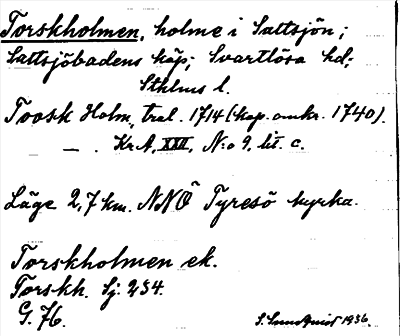 Torskholmen, holme i Saltsjön;
Saltsjöbadens köp; Svartlösa hd;
Sthlms l.
Toosk Holm, tral. 1714 (kop. omkr. 1740).
— . Kr A, XXII, N:o 9, lit. c.
Läge 2,7 km. NNÖ Tyresö kyrka.
Torskholmen ek.
Torskh. Sj: 254.
G. 76.
S. Sundquist 1936.